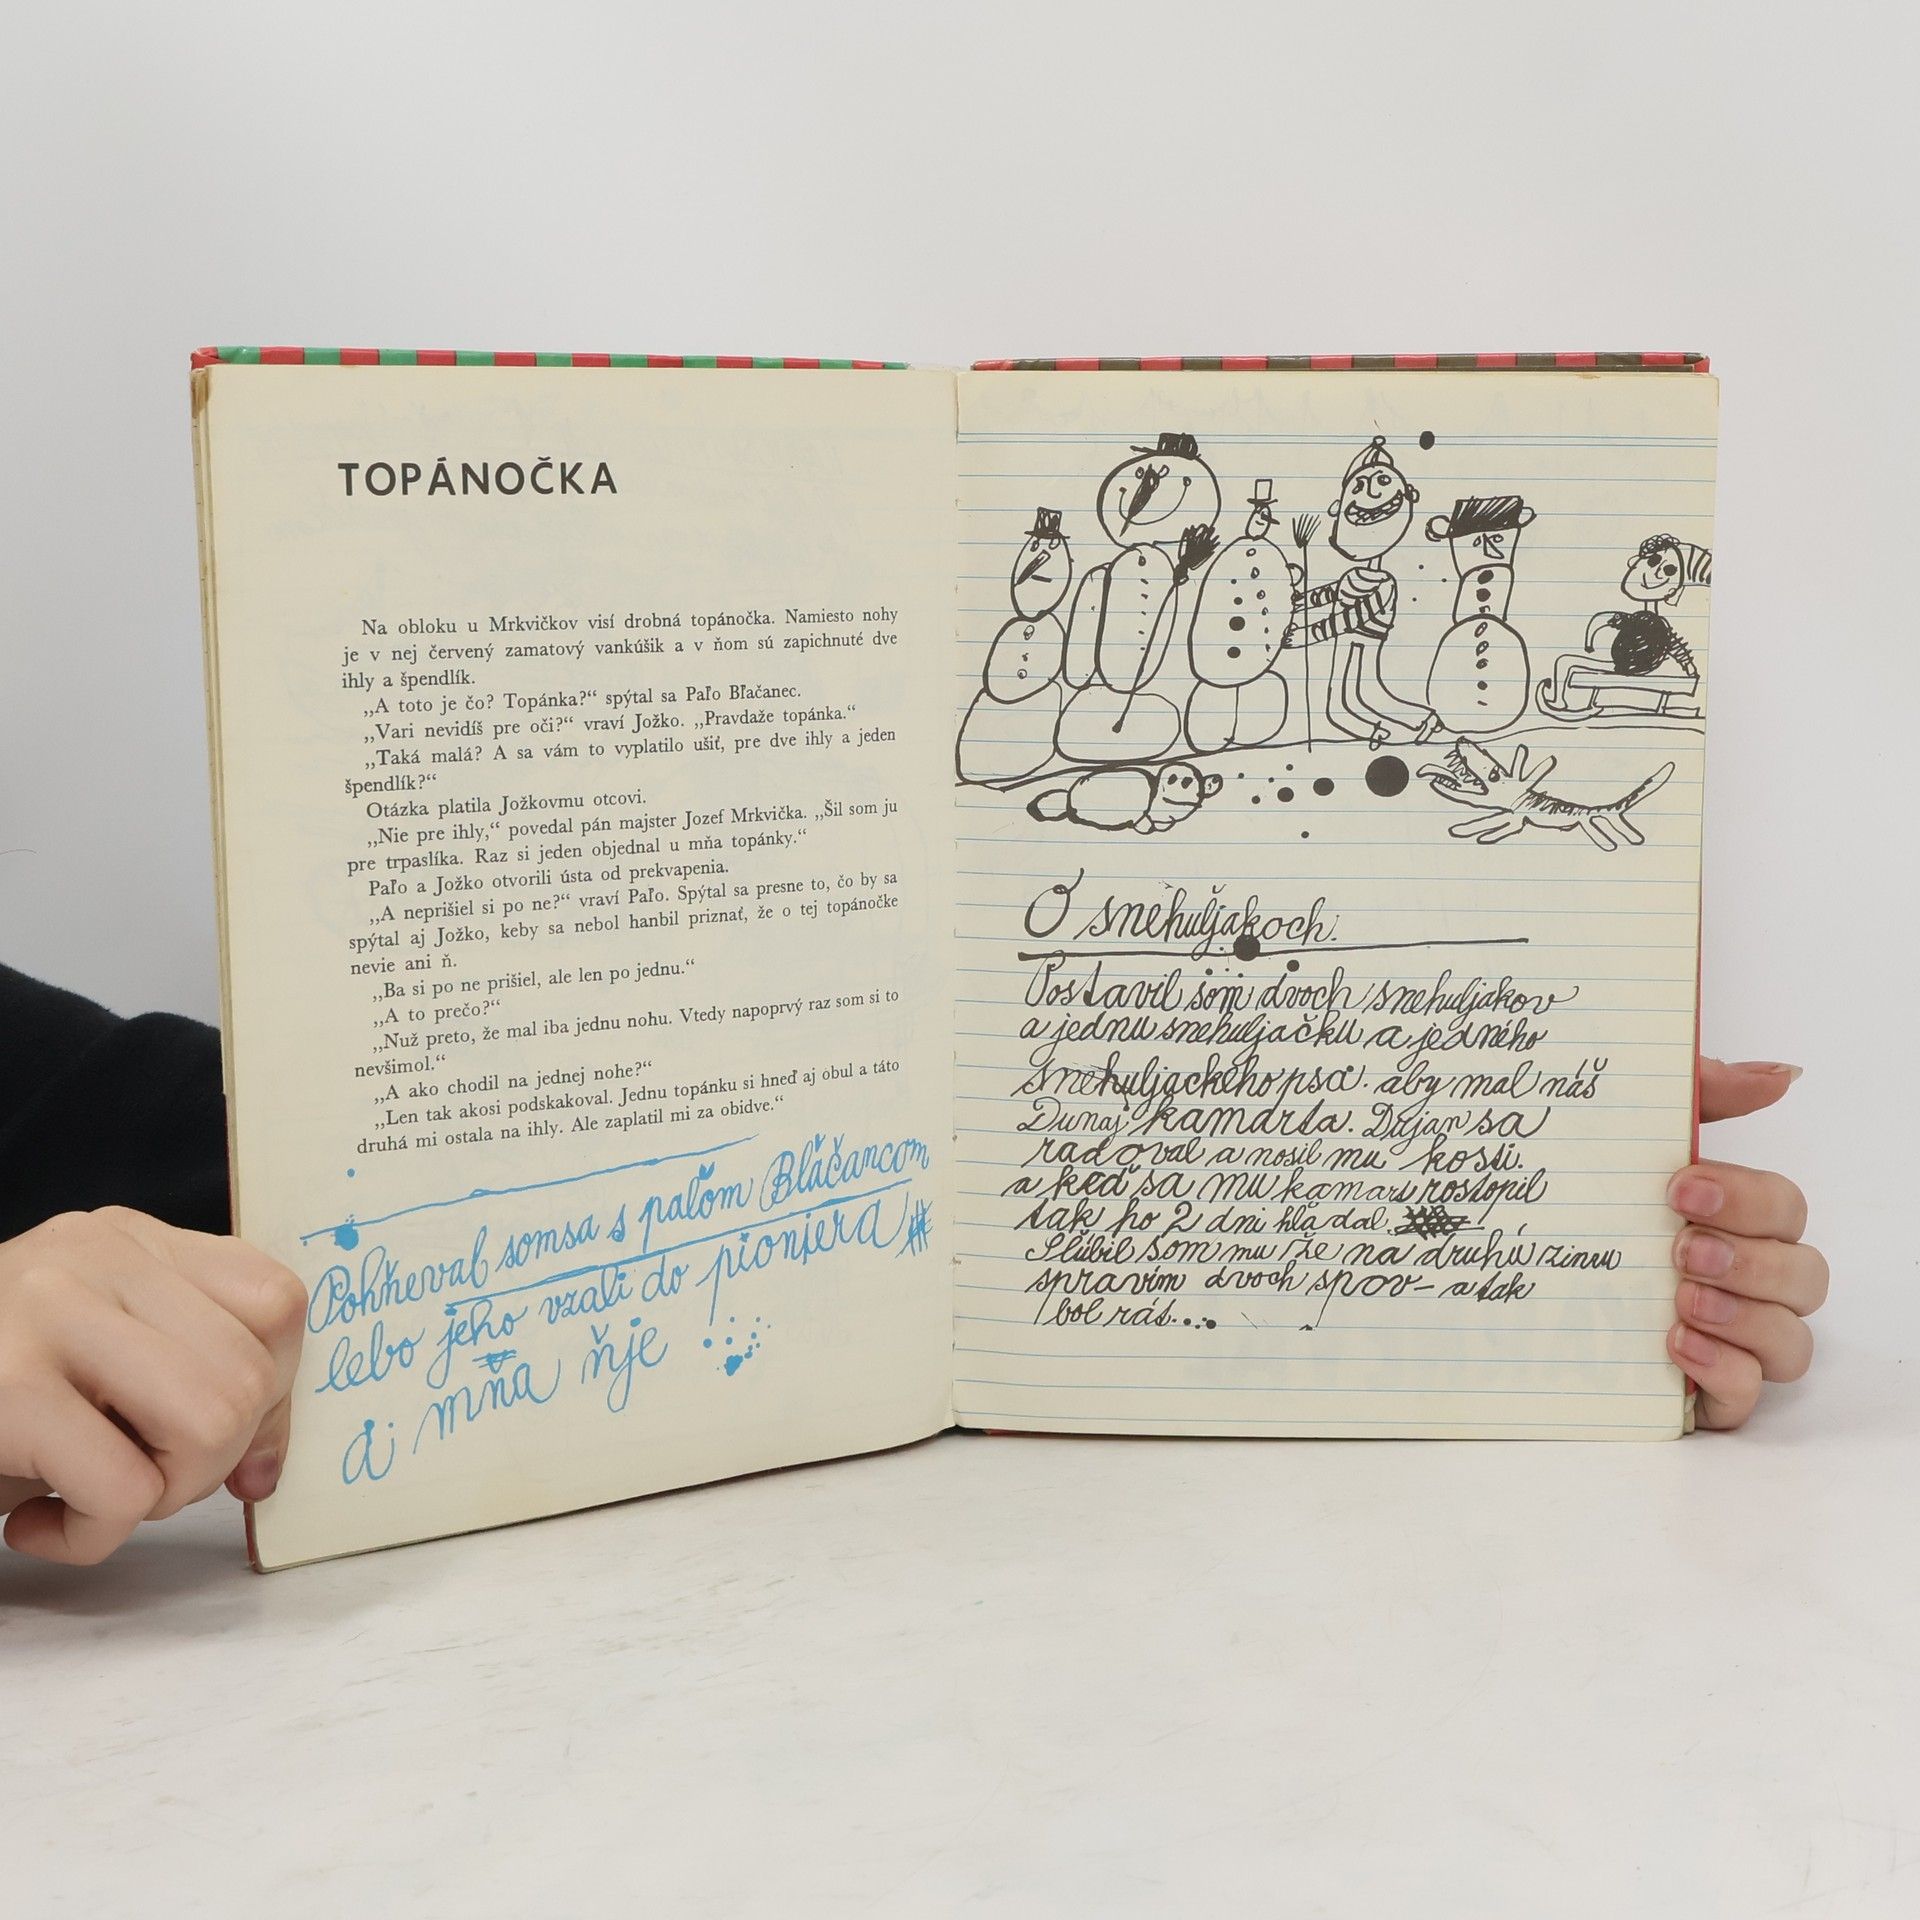 TOPÁNOČKA
Na obloku u Mrkvičkov visí drobná topánočka. Namiesto nohy
je v nej červený zamatový vankúšik a v ňom sú zapichnuté dve
ihly a špendlík.
„A toto je čo? Topánka?“ spýtal sa Paľo Bľačanec.
„Vari nevidíš pre oči?“ vraví Jožko. „Pravdaže topánka.“
„Taká malá? A sa vám to vyplatilo ušiť, pre dve ihly a jeden
špendlík?“
Otázka platila Jožkovmu otcovi.
„Nie pre ihly,“ povedal pán majster Jozef Mrkvička. „Šil som ju
pre trpaslíka. Raz si jeden objednal u mňa topánky.“
Paľo a Jožko otvorili ústa od prekvapenia.
„A neprišiel si po ne?“ vraví Paľo. Spýtal sa presne to, čo by sa
spýtal aj Jožko, keby sa nebol hanbil priznať, že o tej topánočke
nevie ani ň.
„Ba si po ne prišiel, ale len po jednu.“
„A to prečo?“
„Nuž preto, že mal iba jednu nohu. Vtedy napoprvý raz som si to
nevšimol.“
„A ako chodil na jednej nohe?“
„Len tak akosi podskakoval. Jednu topánku si hneď aj obul a táto
druhá mi ostala na ihly. Ale zaplatil mi za obidve.“
Pohňeval somsa s paľom Bláčancom
lebo jeho vzali do pionjera
a mňa ňje
O snehuljakoch.
Postavil som dvoch snehuljakov
a jednu snehuljačku a jedného
snehuljackého psa. aby mal náš
Dunaj kamarta. Dujan sa
radoval a nosil mu kosti.
a keď sa mu kamart rostopil
tak ho 2 dni hľadal.
Slúbil som mu že na druhú zimu
spravím dvoch spov - a tak
bol rát...